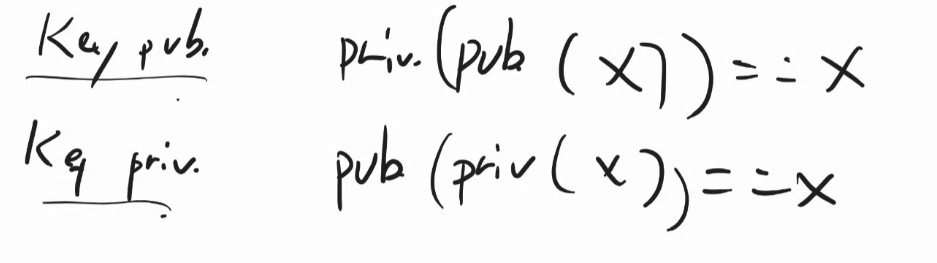 Key pub. priv.(pub(x)) == x
Key priv. pub(priv(x)) == x